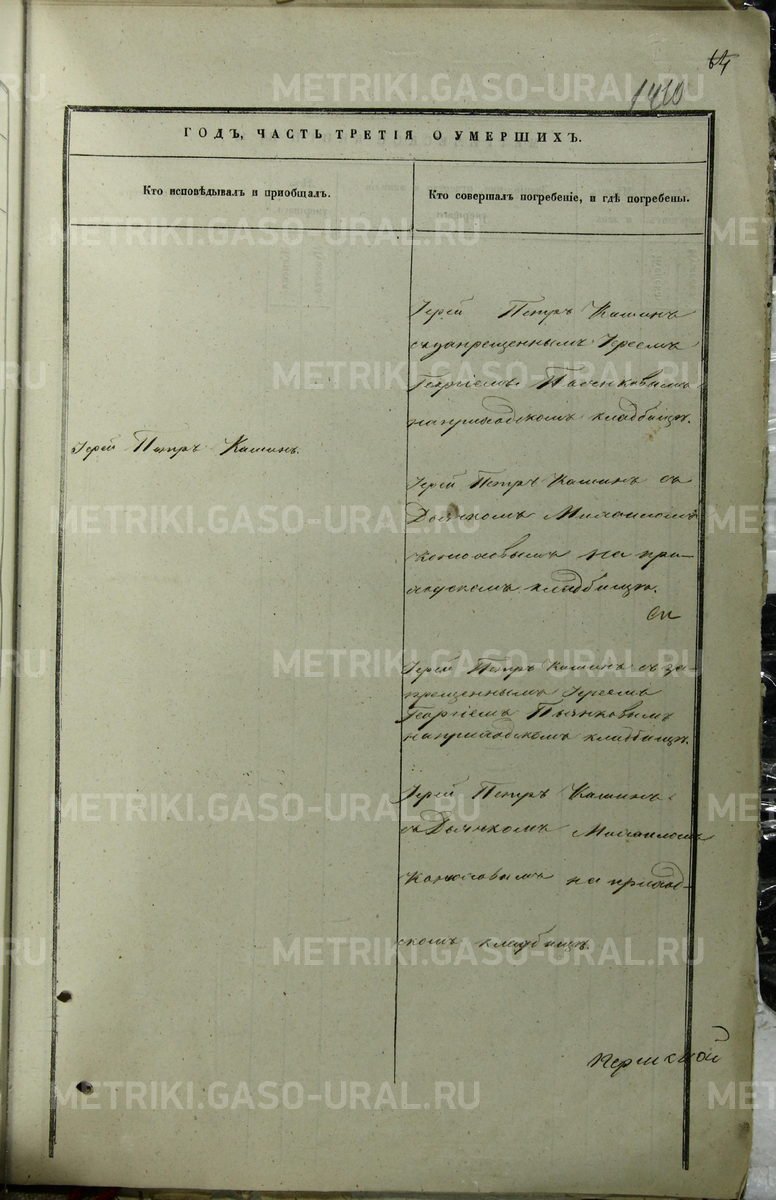 64
1410
ГОДЪ, ЧАСТЬ ТРЕТІЯ О УМЕРШИХЪ.
Кто исповѣдывалъ и пріобщалъ.
Кто совершалъ погребеніе, и гдѣ погребены.
Іерей Петръ Кашинъ.
Іерей Петръ Кашинъ
съ запрещеннымъ Іереемъ
Георгіемъ Пьянковымъ
на приходскомъ кладбищѣ.
Іерей Петръ Кашинъ съ
Дьячкомъ Михаиломъ
на при-
ходскомъ кладбищѣ.
Іерей Петръ Кашинъ съ за-
прещеннымъ Іереемъ
Георгіемъ Пьянковымъ
на приходскомъ кладбищѣ.
Іерей Петръ Кашинъ
съ Дьячкомъ Михаиломъ
на приход-
скомъ кладбищѣ.
Пермской
METRIKI.GASO-URAL.RU